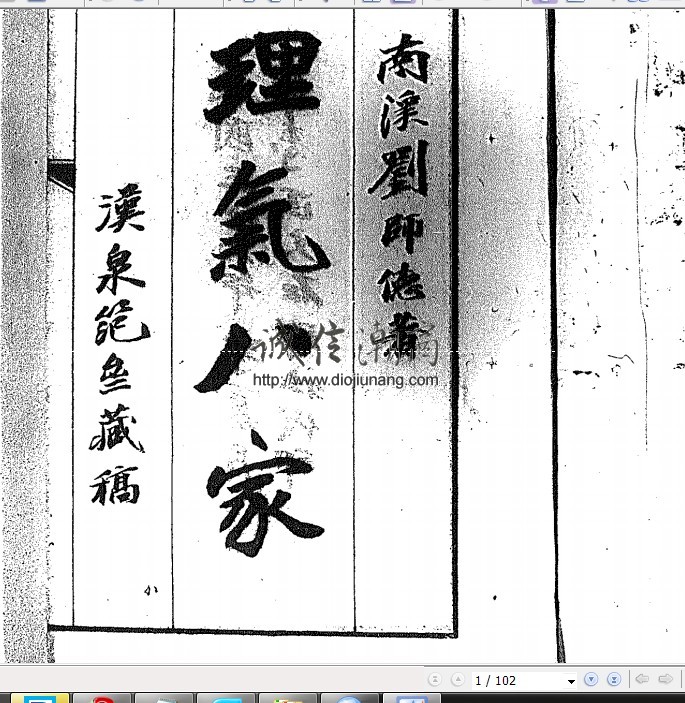 南溪劉師德著
理氣八家
漢泉藏稿
http://www.diojiunang.com
1 / 102